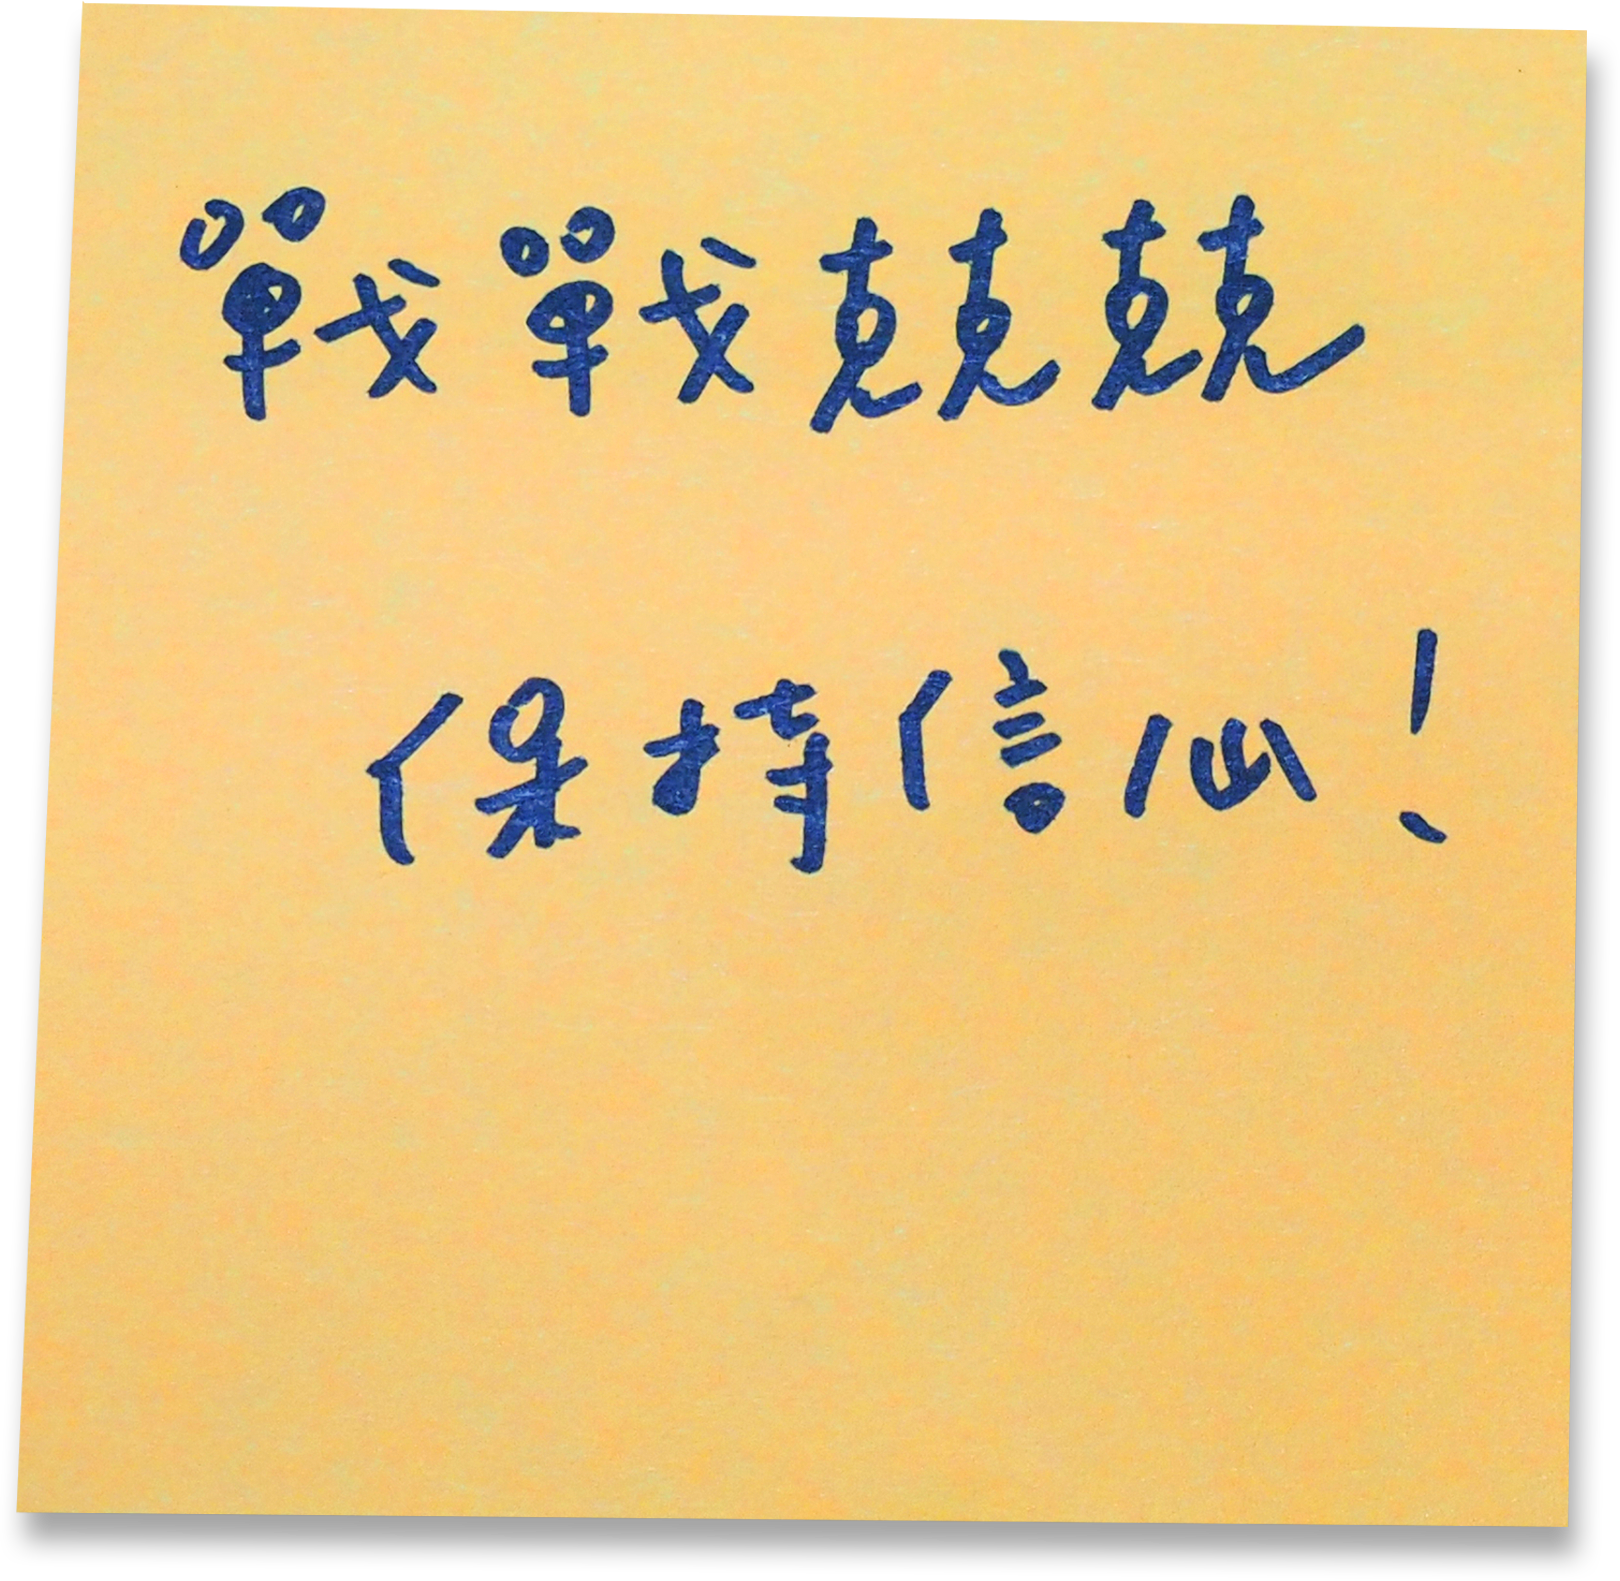 戰戰兢兢
保持信心!